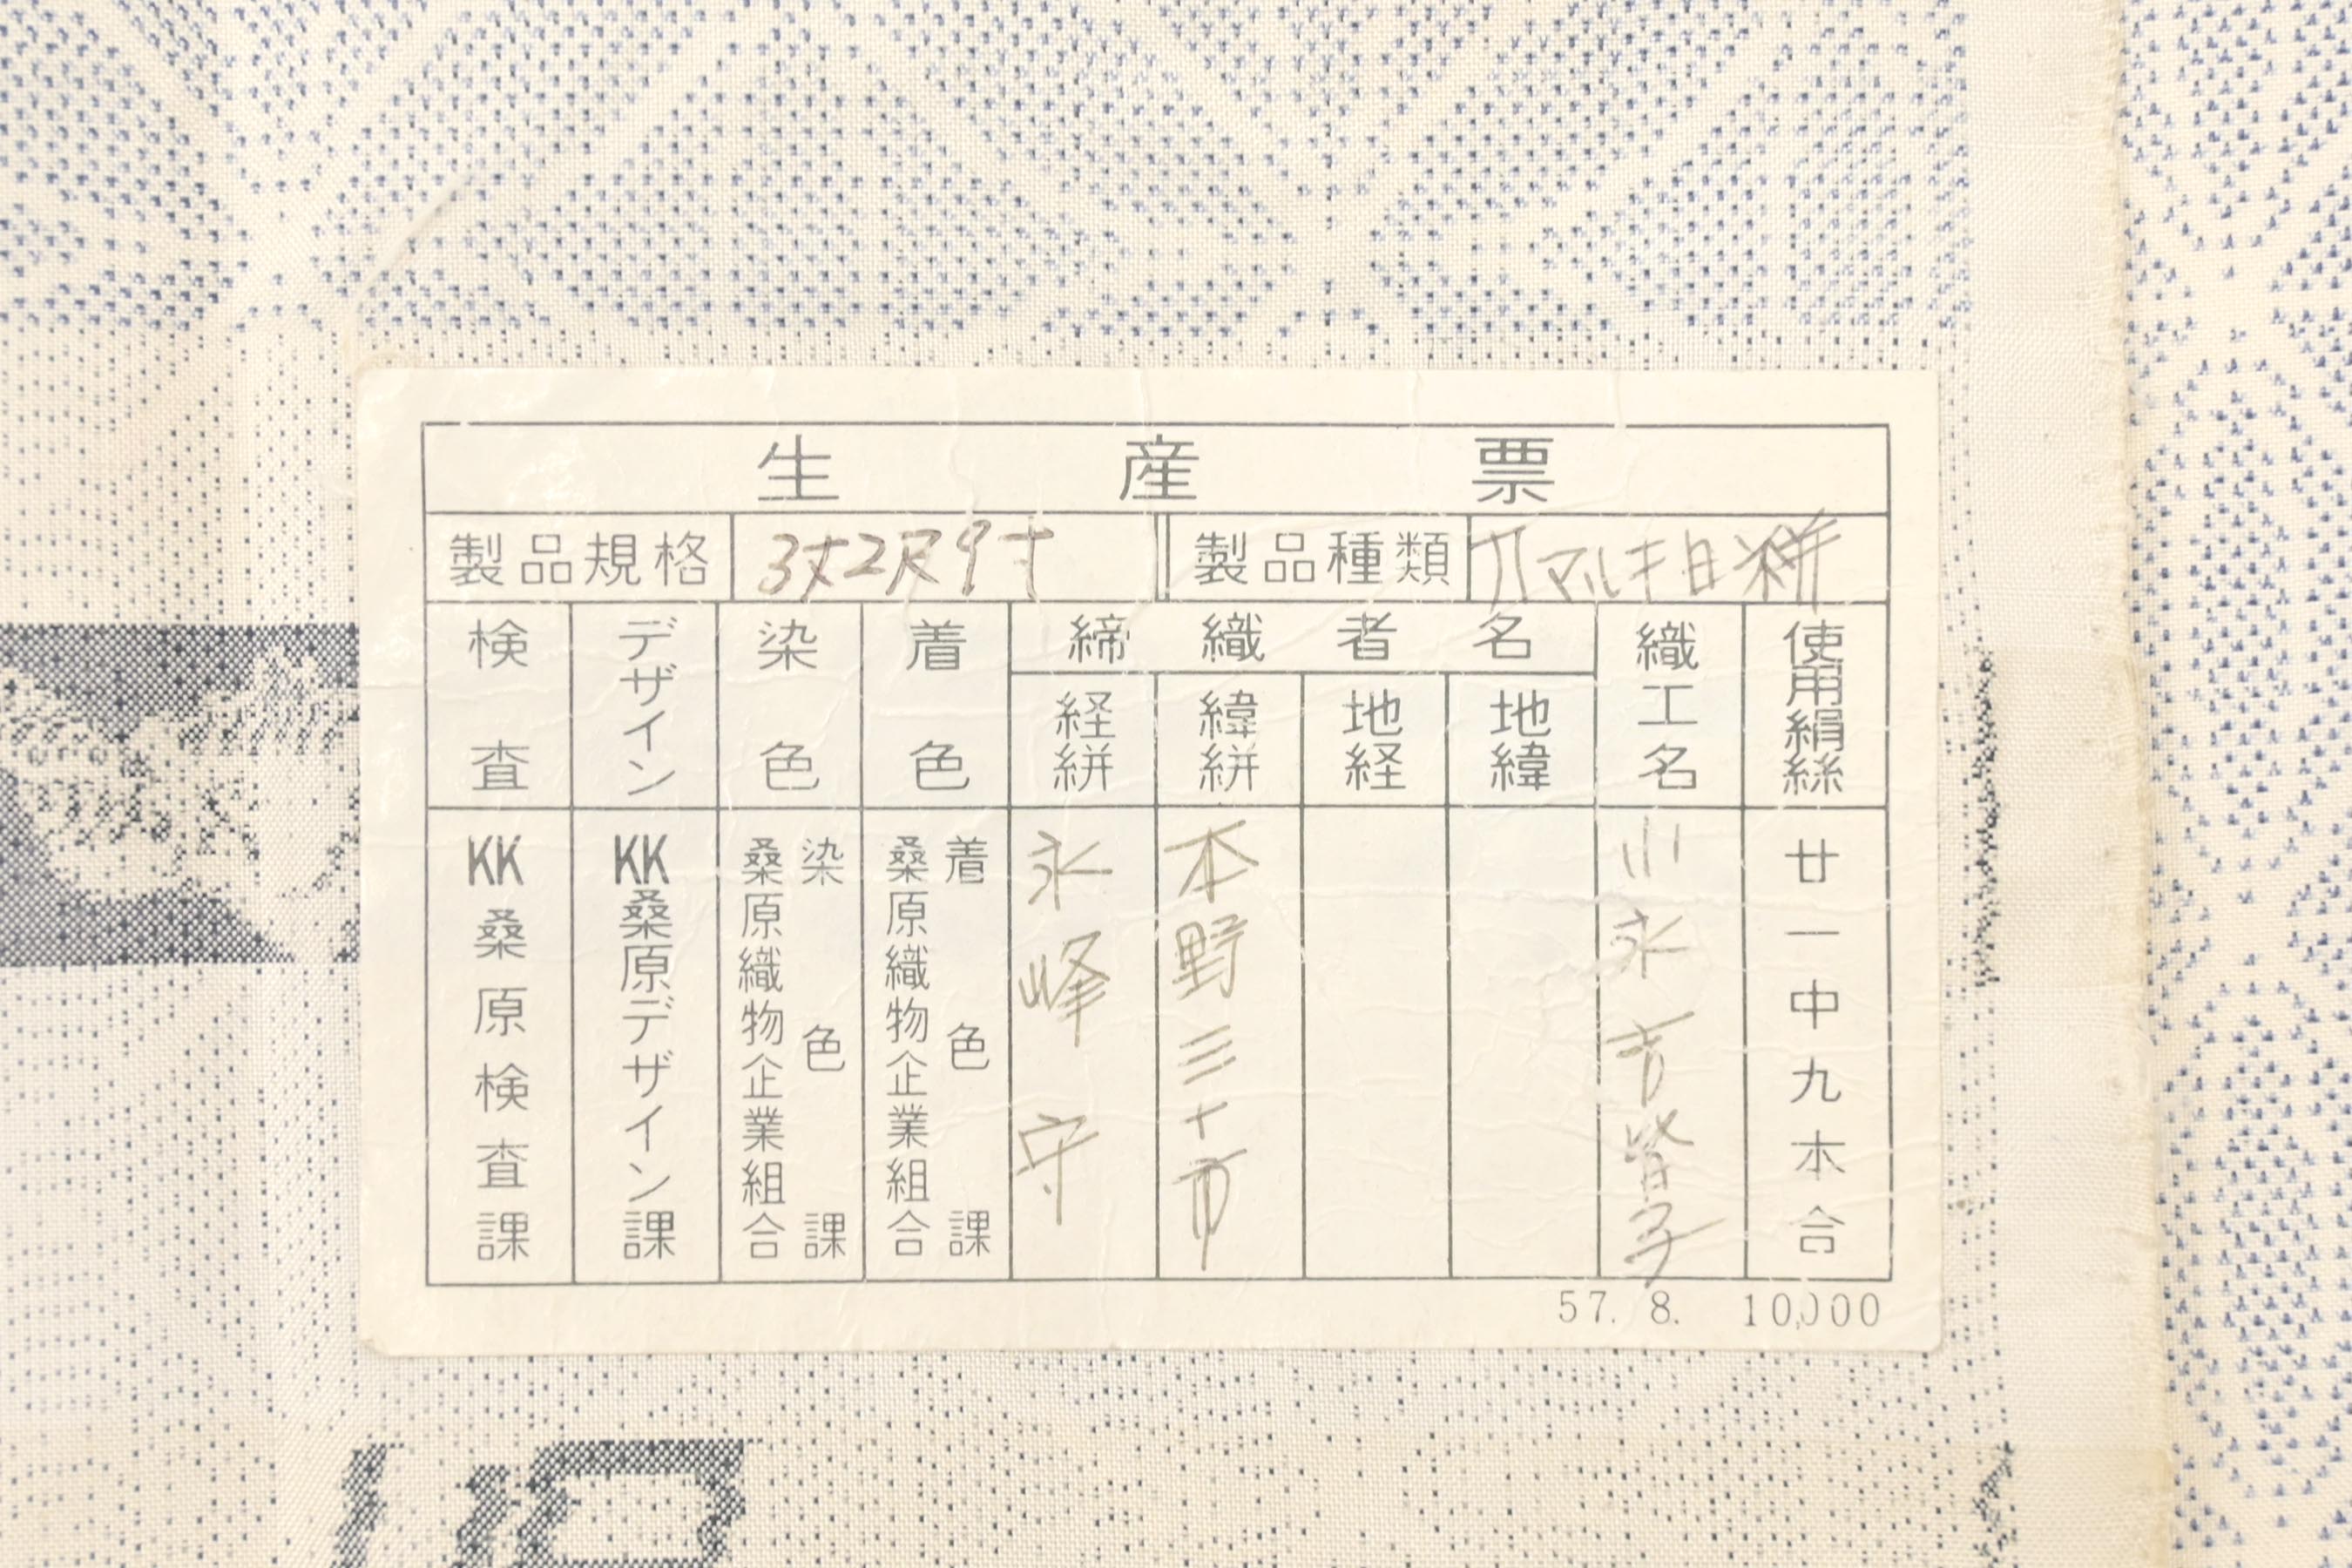 生産票
製品規格 3丈2尺9寸 製品種類 九マルキ白絣
検査 デザイン 染色 着色 締織者名 織工名 使用絹絲
経絣 緯絣 地経 地緯
KK桑原検査課
KK桑原デザイン課
桑原織物企業組合 染色課
桑原織物企業組合 着色課
永峰 守
本野三十市
小永吉
子
廿一中九本合
57. 8. 10,000